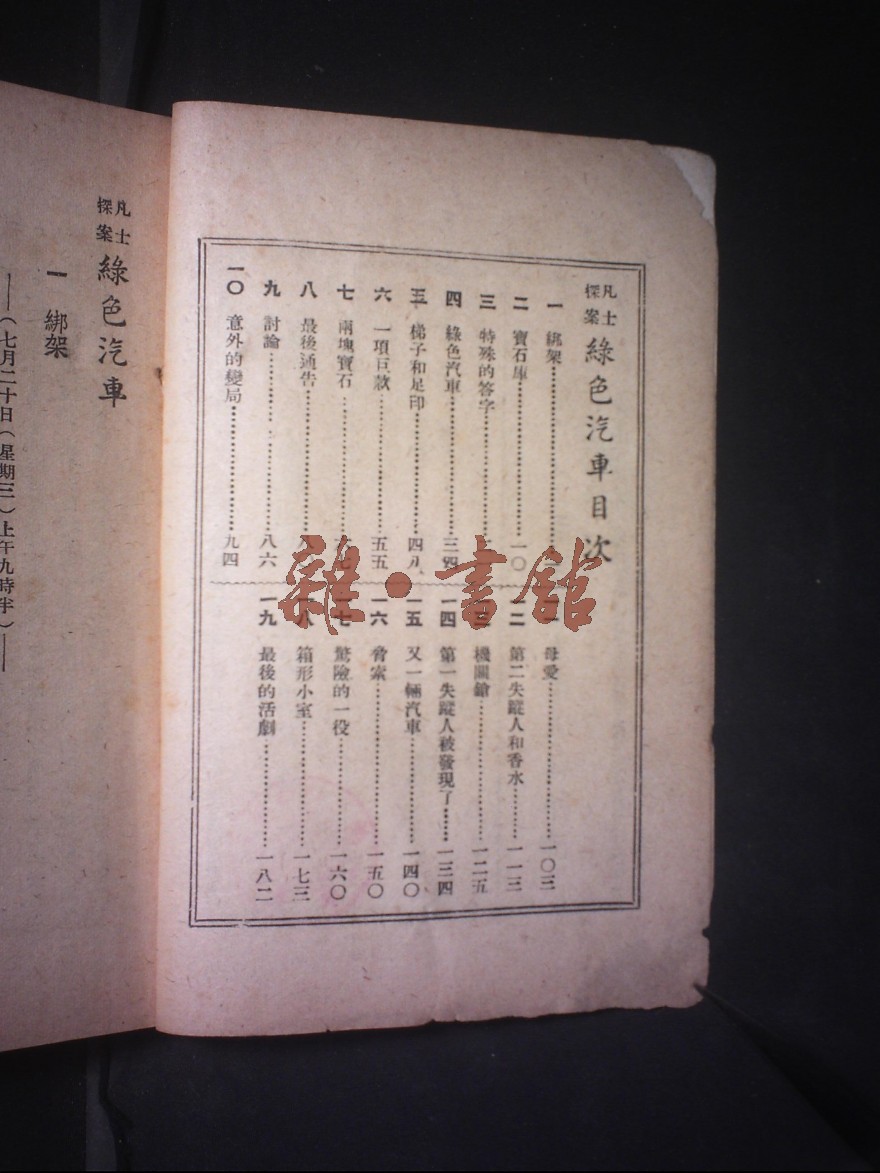 凡士探案 綠色汽車目次
一 綁架
二 寶石庫 一〇
三 特殊的簽字
四 綠色汽車 三四
五 梯子和足印 四八
六 一項巨款 五五
七 兩塊寶石
八 最後通告
九 討論 八六
一〇 意外的變局 九四
母愛 一〇三
一二 第二失蹤人和香水 一一三
機關鎗 一二五
一四 第一失蹤人被發現了 一三四
一五 又一輛汽車 一四〇
一六 脅索 一五〇
一七 驚險的一役 一六〇
一八 箱形小室 一七三
一九 最後的活劇 一八二
凡士探案 綠色汽車
一 綁架
——(七月二十日(星期三)上午九時半)——
雜·書館